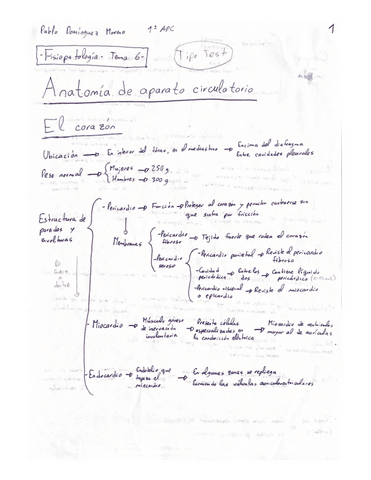 Pablo Domínguez Moreno 1º APC 1
- Fisiopatología - Tema 6 -
Tipo Test
Anatomía de aparato circulatorio
El corazón
Ubicación → En interior del tórax, en el mediastino → Encima del diafragma
Entre cavidades pleurales
Peso normal → Mujeres → 250 g
Hombres → 300 g
Estructura de
paredes y
envolturas
De
fuera
a
dentro
- Pericardio → Función → Proteger al corazón y permitir contraerse sin
que sufra por fricción
Membranas
- Pericardio
fibroso → Tejido fuerte que rodea el corazón
- Pericardio
seroso
- Pericardio parietal → Reviste el pericardio
fibroso
- Cavidad
pericárdica → Entre los
dos → Contiene líquido
pericárdico
- Pericardio visceral → Reviste el miocardio
o epicardio
- Miocardio → Músculo grueso
de inervación
involuntaria → Presenta células
especializadas en
la conducción eléctrica → Miocardio de ventrículos
mayor al de aurículas
- Endocardio → Endotelio que
tapiza el
miocardio → En algunas zonas se repliega
formando las válvulas auriculoventriculares